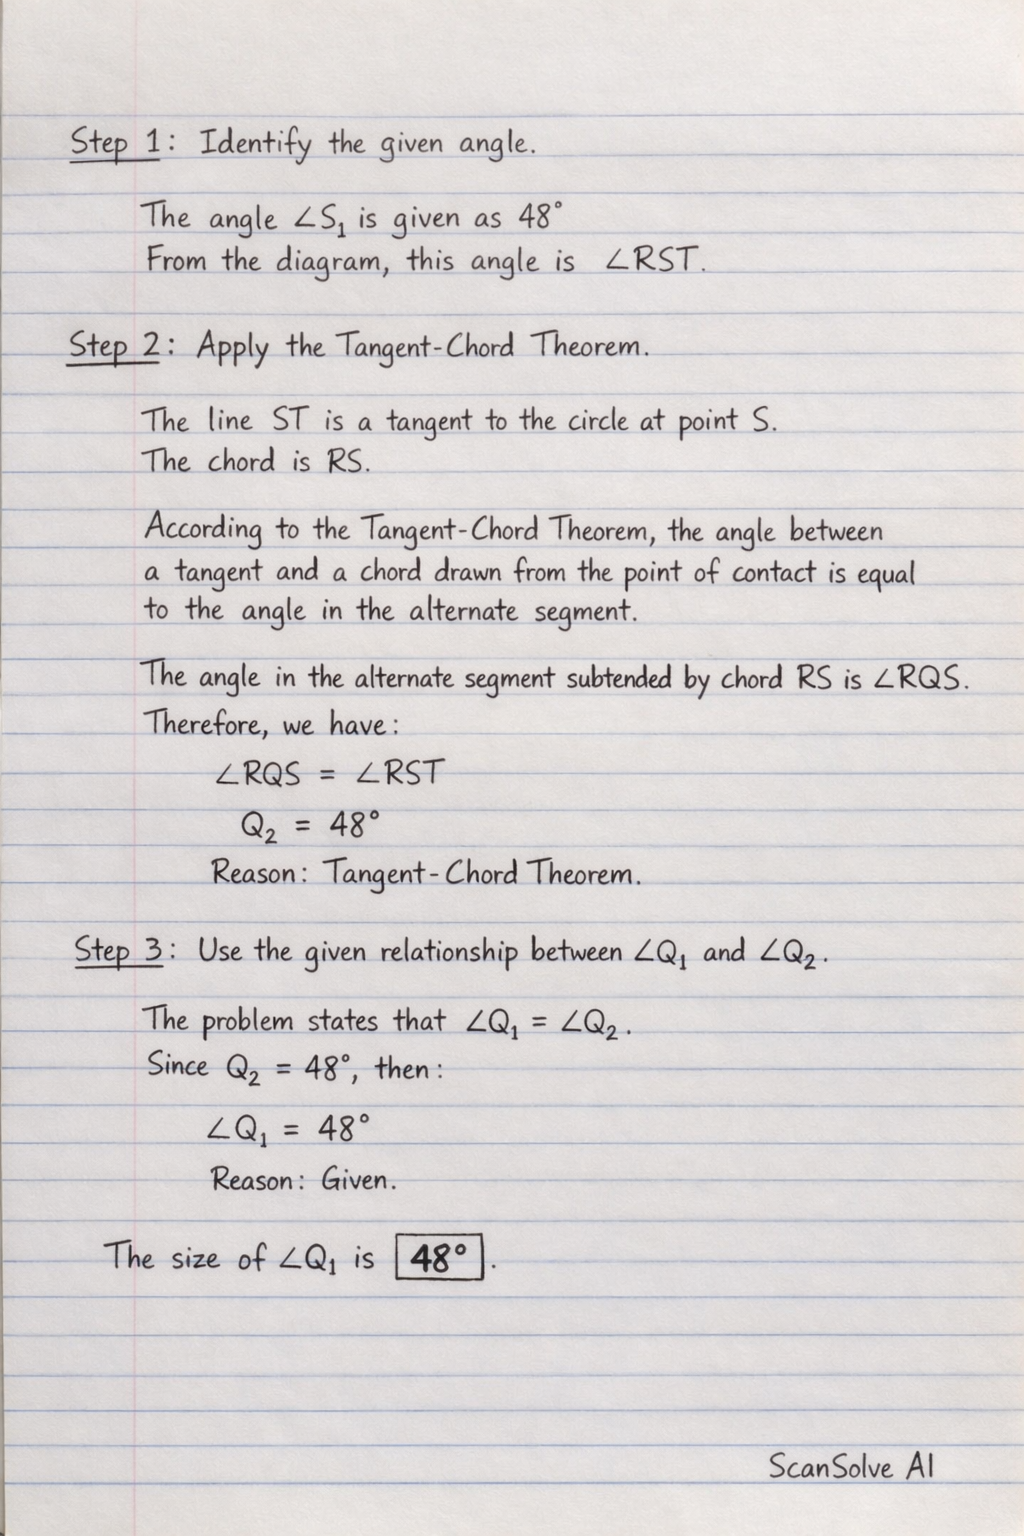 Step 1: Identify the given angle.
The angle ∠S₁ is given as 48°
From the diagram, this angle is ∠RST.
Step 2: Apply the Tangent-Chord Theorem.
The line ST is a tangent to the circle at point S.
The chord is RS.
According to the Tangent-Chord Theorem, the angle between
a tangent and a chord drawn from the point of contact is equal
to the angle in the alternate segment.
The angle in the alternate segment subtended by chord RS is ∠RQS.
Therefore, we have:
∠RQS = ∠RST
Q₂ = 48°
Reason: Tangent-Chord Theorem.
Step 3: Use the given relationship between ∠Q₁ and ∠Q₂.
The problem states that ∠Q₁ = ∠Q₂.
Since Q₂ = 48°, then:
∠Q₁ = 48°
Reason: Given.
The size of ∠Q₁ is 48°.
ScanSolve AI